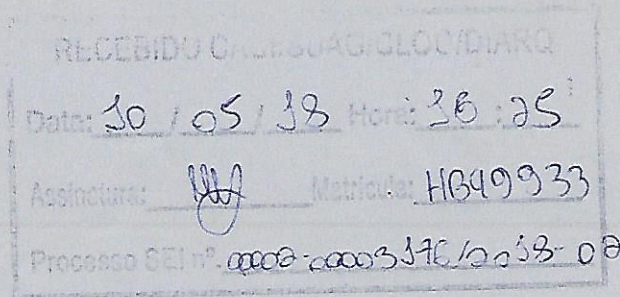 RECEBIDO
Data: 10 / 05 / 18 Hora: 16 : 25
Assinatura: Matrícula: HB49933
Processo SEI nº. 00002-00003176/2018-02